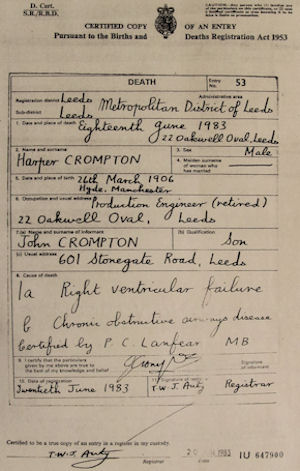 D. Cert.
S.R./R.B.D.
CERTIFIED COPY OF AN ENTRY
Pursuant to the Births and Deaths Registration Act 1953
DEATH
Entry No. 53
Registration district Leeds
Administrative area
Sub-district Leeds
Metropolitan District of Leeds
1. Date and place of death
Eighteenth June 1983
22 Oakwell Oval, Leeds
2. Name and surname
Harper CROMPTON
3. Sex Male
4. Maiden surname of woman who has married
5. Date and place of birth
26th March 1906
Hyde, Manchester
6. Occupation and usual address
Production Engineer (retired)
22 Oakwell Oval, Leeds
7.(a) Name and surname of informant
John CROMPTON
(b) Qualification
Son
(c) Usual address
601 Stonegate Road, Leeds
8. Cause of death
1a Right ventricular failure
b Chronic obstructive airways disease
Certified by P. C. Lanfear MB
9. I certify that the particulars given by me above are true to the best of my knowledge and belief
Signature of informant
10. Date of registration
Twentieth June 1983
11. Signature of registrar
T.W.J. Auty
Registrar
Certified to be a true copy of an entry in a register in my custody.
T.W.J. Auty
Registrar
20 1983
Date
IU 647900